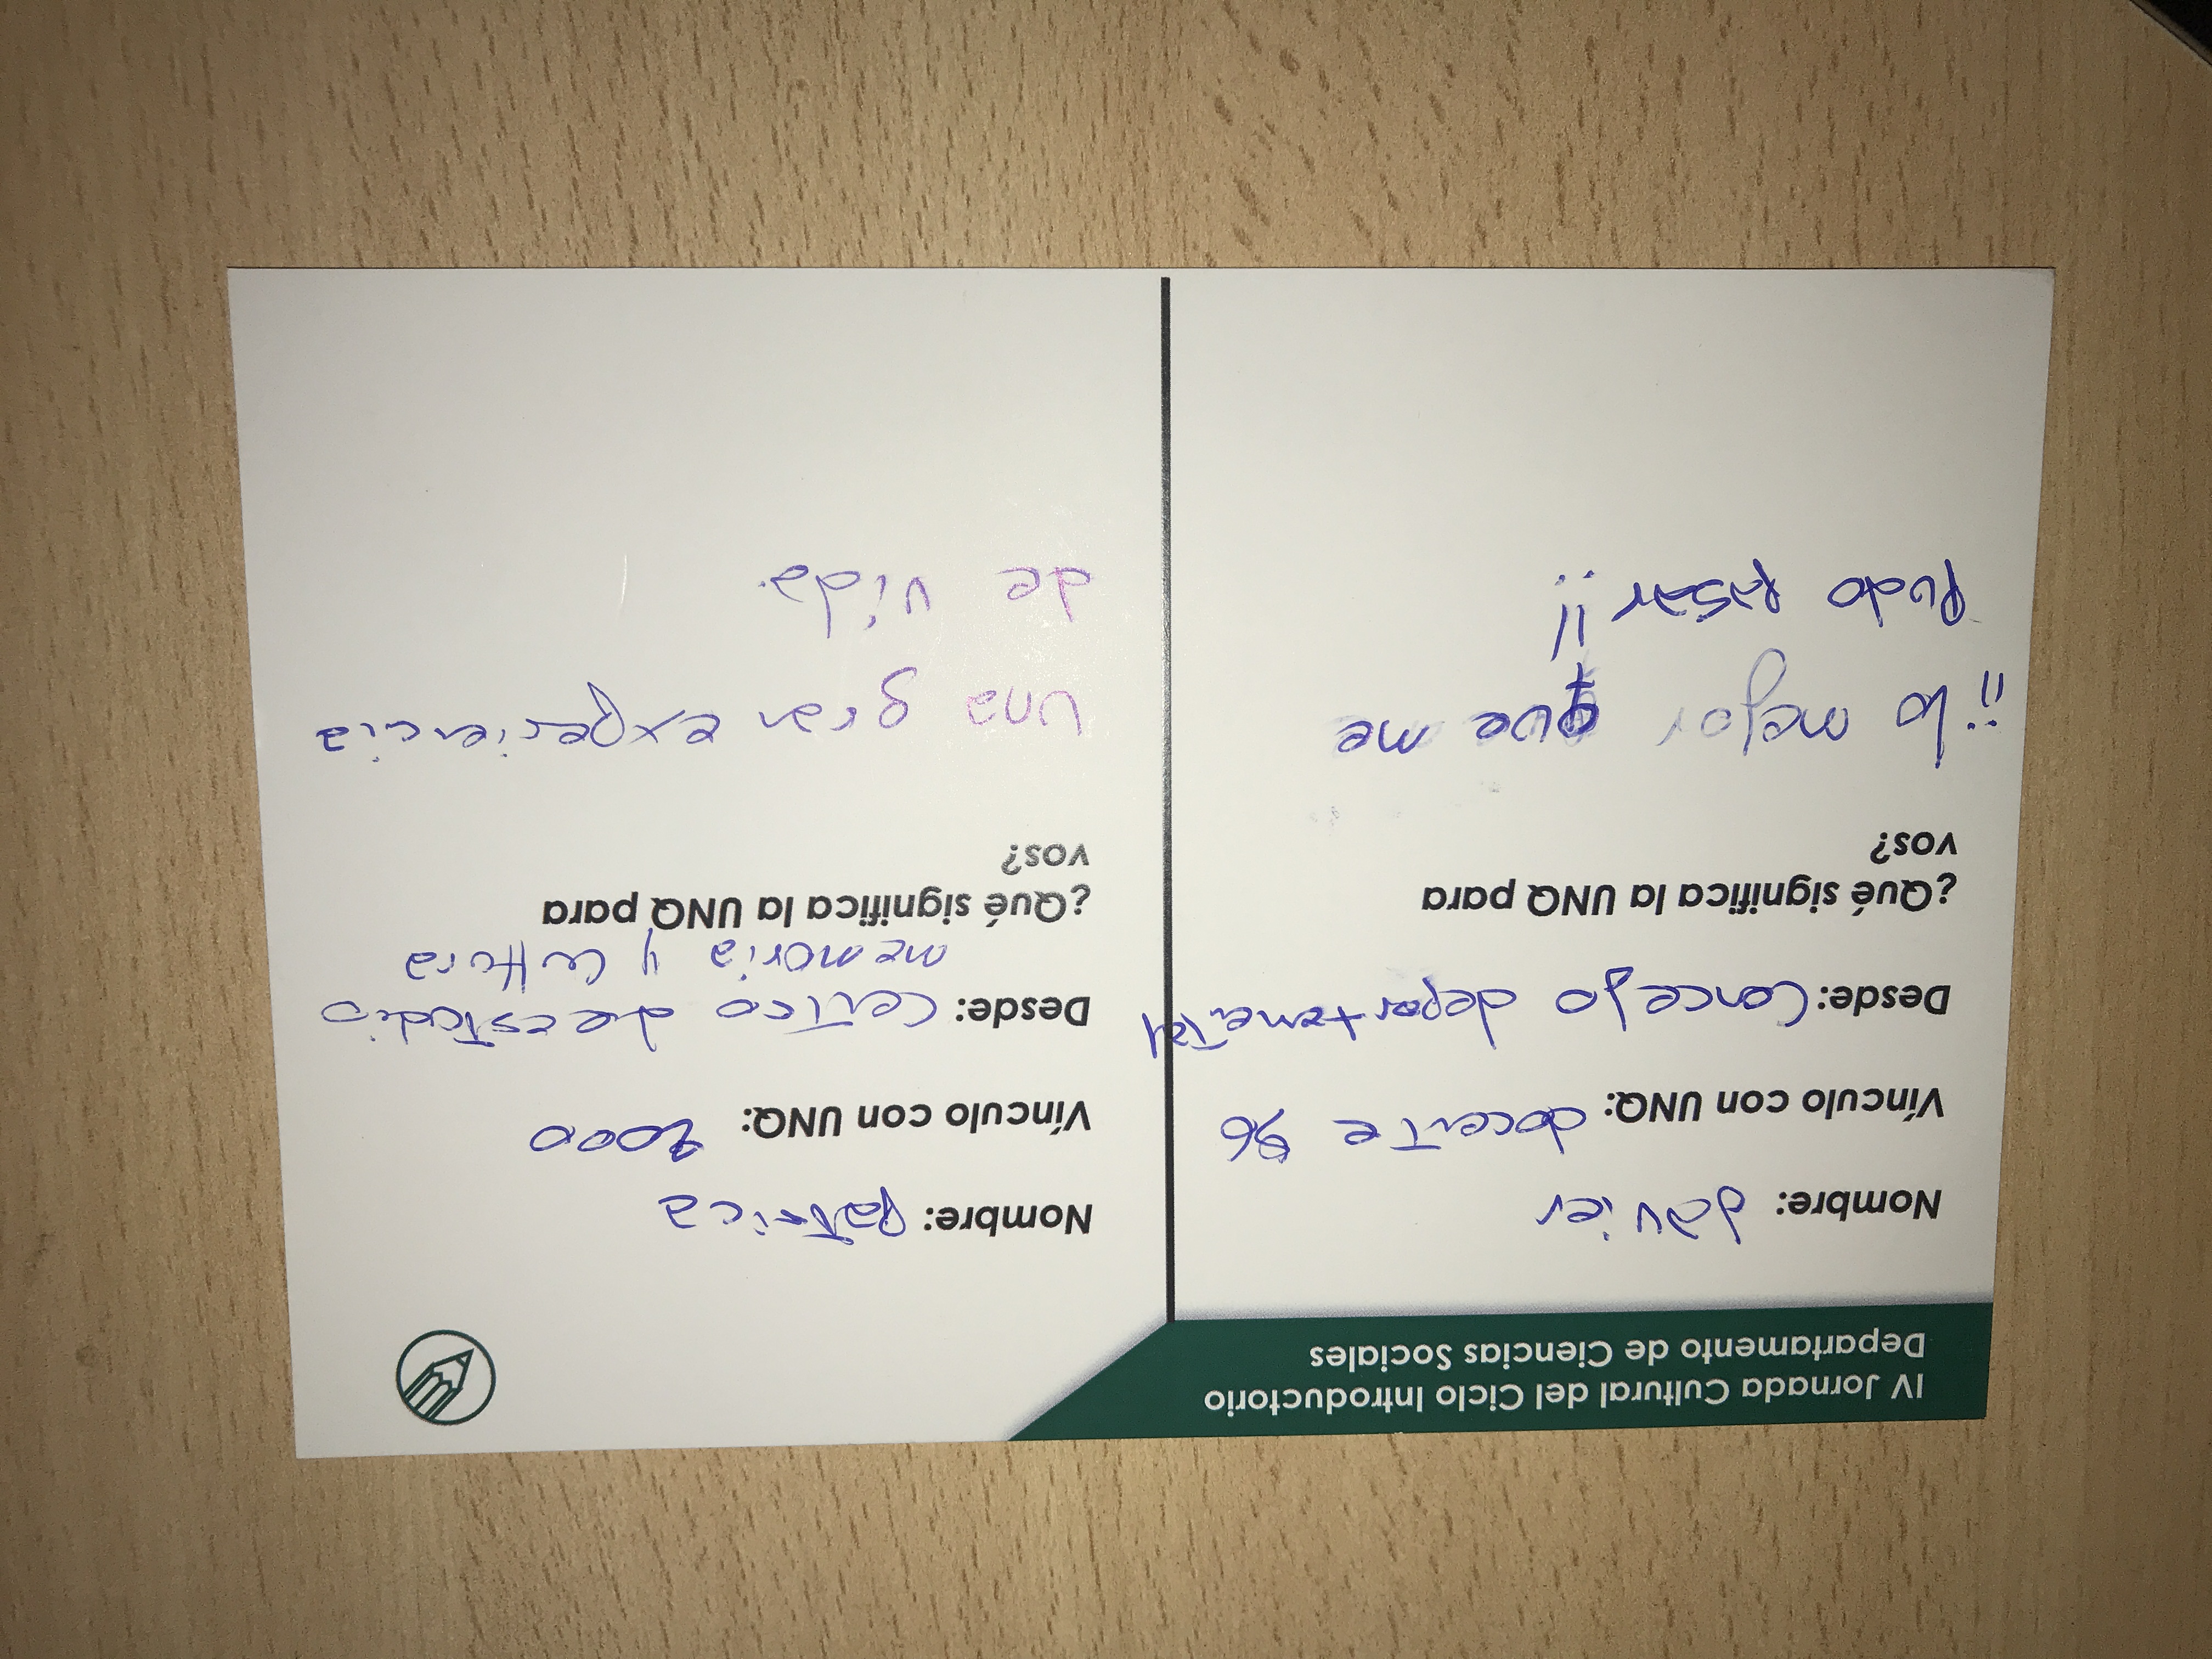 IV Jornada Cultural del Ciclo Introductorio
Departamento de Ciencias Sociales
Nombre: Javier
Vínculo con UNQ: docente 96
Desde: Concejo departamental
¿Qué significa la UNQ para
vos?
¡¡lo mejor que me
Pudo pasar!!
Nombre: Patrica
Vínculo con UNQ: 2000
Desde: Centro de estudio
memoria y cultura
¿Qué significa la UNQ para
vos?
Una gran experiencia
de vida.